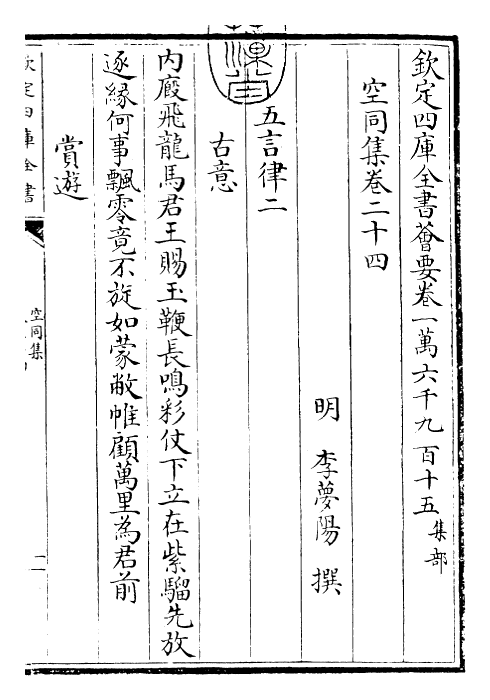 欽定四庫全書薈要卷一萬六千九百十五集部
空同集卷二十四
明 李夢陽 撰
五言律二
古意
内廄飛龍馬君王賜玉鞭長鳴彩仗下立在紫騮先放
逐緣何事飄零竟不旋如蒙敝帷顧萬里為君前
賞遊
欽定四庫全書
空同集